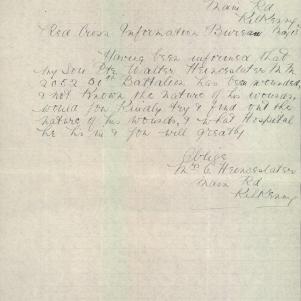 Main Rd
Kilkenny
Red Cross Information Bureau May 13
Having been informed that
my Son Pte Walter M.M.
2052 Battalion has been wounded,
& not known the nature of his wounds,
would you Kindly try & find out the
nature of his wounds, & what Hospital
he is in & you will greatly
Oblige
Mrs C
Main Rd
Kilkenny